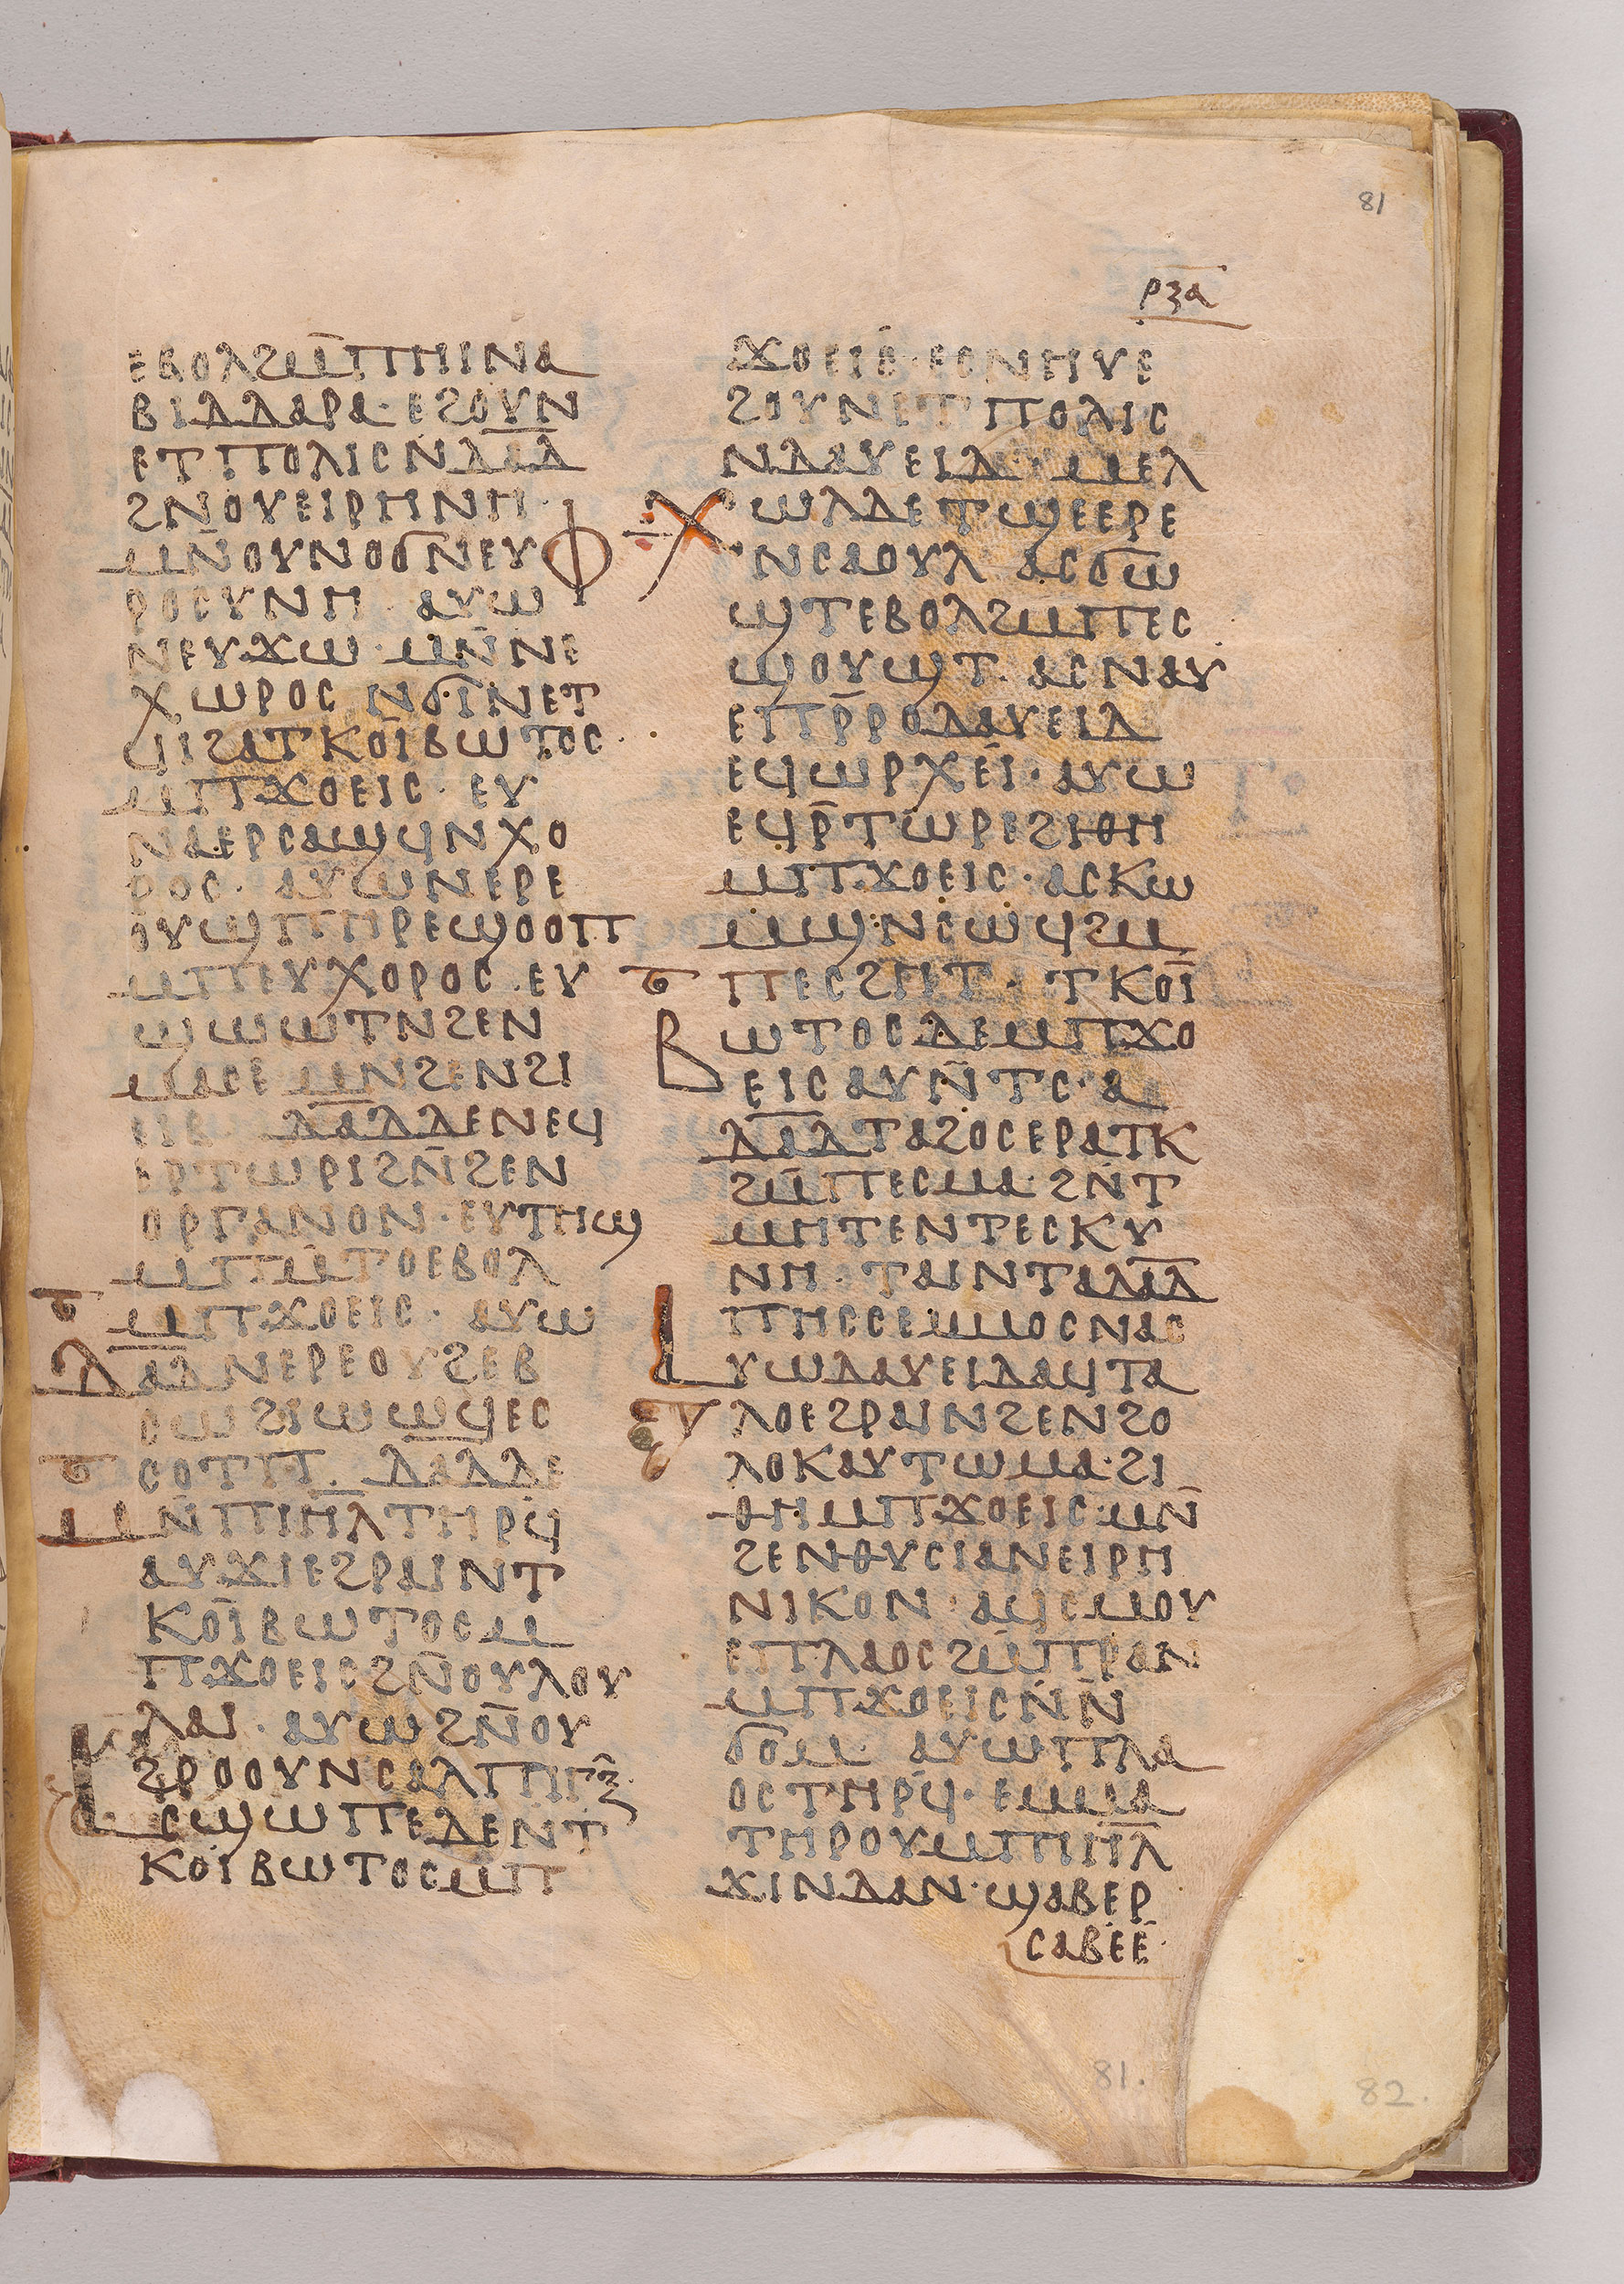 81
ⲣⲝⲁ
ⲉⲃⲟⲗϩⲙ̄ⲡⲏⲓⲛⲁ
ⲃⲓⲇⲇⲁⲣⲁ· ⲉϩⲟⲩⲛ
ⲉⲧⲡⲟⲗⲓⲥⲛⲇⲁ̄ⲇ
ϩⲛⲟⲩⲉⲓⲣⲏⲛⲏ
ⲙⲛ̄ⲟⲩⲛⲟϭⲛⲉⲩⲫ
ⲣⲟⲥⲩⲛⲏ· ⲁⲩⲱ
ⲛⲉⲩϫⲱ· ⲙⲛ̄ⲛⲉ
ⲭⲱⲣⲟⲥ ⲛϭⲓⲛⲉⲧ
ϥⲓϩⲁⲧⲕⲟⲓ̈ⲃⲱⲧⲟⲥ·
ⲙⲡϫⲟⲉⲓⲥ· ⲉⲩ
ⲛⲁⲉⲣⲥⲁϣϥⲛⲭⲟ
ⲣⲟⲥ· ⲁⲩⲱⲛⲉⲣⲉ
ⲟⲩϣⲡⲏⲣⲉϣⲟⲟⲡ
ⲙⲡⲉⲩⲭⲟⲣⲟⲥ· ⲉⲩ
ϣⲱⲱⲧⲛϩⲉⲛ
ⲙⲁⲥⲉ ⲙⲛϩⲉⲛϩⲓ
ⲉⲓⲃ· ⲇⲁ̄ⲇⲇⲉⲛⲉϥ
ⲉⲣⲧⲱⲣⲓϩⲛ̄ϩⲉⲛ
ⲟⲣⲅⲁⲛⲟⲛ· ⲉⲩⲧⲏϣ
ⲙⲡⲙ̄ⲧⲟⲉⲃⲟⲗ
ⲙⲡϫⲟⲉⲓⲥ· ⲁⲩⲱ
ⲇⲁ̄ⲇⲛⲉⲣⲉⲟⲩϩⲉⲃ
ⲥⲱϩⲓⲱⲱϥⲉⲥ
ⲥⲟⲧⲡ. ⲇⲁ̄ⲇⲇⲉ
ⲙⲛ̄ⲡⲓⲏ̄ⲗⲧⲏⲣϥ
ⲁⲩϫⲓⲉϩⲣⲁⲓⲛⲧ
ⲕⲟⲓ̈ⲃⲱⲧⲟⲥⲙ
ⲡϫⲟⲉⲓⲥϩⲛ̄ⲟⲩⲗⲟⲩ
ⲗⲁⲓ· ⲁⲩⲱϩⲛ̄ⲟⲩ
ϩⲣⲟⲟⲩⲛⲥⲁⲗⲡⲓⲅⲝ̄·
ⲁⲥϣⲱⲡⲉⲇⲉⲛⲧ
ⲕⲟⲓⲃⲱⲧⲟⲥⲙⲡ
ϫⲟⲉⲓⲥ· ⲉⲥⲛⲏⲩⲉ
ϩⲟⲩⲛⲉⲧⲡⲟⲗⲓⲥ
ⲛⲇⲁⲩⲉⲓⲇ· ⲙⲉⲗ
ⲭⲱⲗⲇⲉⲧϣⲉⲉⲣⲉ
ⲛⲥⲁⲟⲩⲗ ⲁⲥϭⲱ
ϣⲧⲉⲃⲟⲗϩⲙⲡⲉⲥ
ϣⲟⲩϣⲧ· ⲁⲥⲛⲁⲩ
ⲉⲡⲣ̄ⲣⲟⲇⲁⲩⲉⲓⲇ
ⲉϥⲱⲣⲭⲉⲓ̈· ⲁⲩⲱ
ⲉϥⲣ̄ⲧⲱⲣⲉϩⲓⲑⲏ
ⲙⲡϫⲟⲉⲓⲥ· ⲁⲥⲕⲱ
ⲙϣⲛⲥⲱϥϩⲙ
ⲡⲉⲥϩⲏⲧ· ⲧⲕⲟⲓ̈
ⲃⲱⲧⲟⲥⲇⲉⲙⲡϫⲟ
ⲉⲓⲥⲁⲩⲛ̄ⲧⲥ· ⲁ
ⲇⲁ̄ⲇⲧⲁϩⲟⲥⲉⲣⲁⲧⲕ
ϩⲙ̄ⲡⲉⲥⲙⲁ· ϩⲛ̄ⲧ
ⲙⲏⲧⲉⲛⲧⲉⲥⲕⲩ
ⲛⲏ· ⲧⲁⲓⲛⲧⲁⲇⲁ̄ⲇ
ⲡⲏⲥⲥⲉⲙⲙⲟⲥⲛⲁⲥ
ⲁⲩⲱⲇⲁⲩⲉⲓⲇⲁϥⲧⲁ
ⲗⲟⲉϩⲣⲁⲓⲛϩⲉⲛϩⲟ
ⲗⲟⲕⲁⲩⲧⲱⲙⲁ· ϩⲓ
ⲑⲏⲙⲡϫⲟⲉⲓⲥ· ⲙⲛ̄
ϩⲉⲛⲑⲩⲥⲓⲁⲛⲉⲓⲣⲏ
ⲛⲓⲕⲟⲛ· ⲁϥⲥⲙⲟⲩ
ⲉⲡⲗⲁⲟⲥϩⲙ̄ⲡⲣⲁⲛ
ⲙⲡϫⲟⲉⲓⲥⲛ̄ⲛ̄
ϭⲟⲙ· ⲁⲩⲱⲡⲗⲁ
ⲟⲥⲧⲏⲣϥ· ⲉⲙⲙⲁ
ⲧⲏⲣⲟⲩⲙⲡⲓⲏ̄ⲗ
ϫⲓⲛⲇⲁⲛ· ϣⲁⲃⲉⲣ
ⲥⲁⲃⲉⲉ·
81.
82.